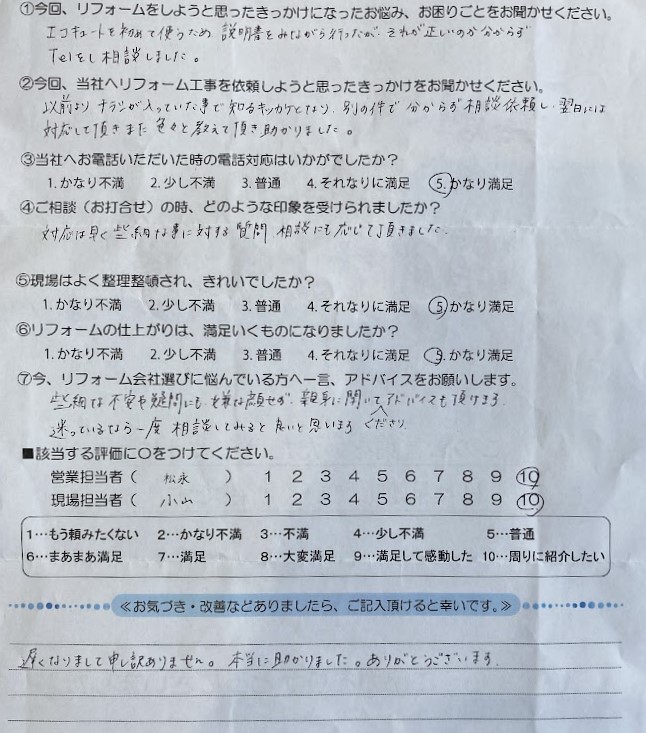 ①今回、リフォームをしようと思ったきっかけになったお悩み、お困りごとをお聞かせください。
エコキュートを初めて使うため 説明書をみながら行ったが、それが正しいのか分からず
Telをし相談しました。
②今回、当社へリフォーム工事を依頼しようと思ったきっかけをお聞かせください。
以前より チラシが入っていた事で知るキッカケとなり、別の件で 分からず相談依頼し、翌日には
対応して頂きまた 色々と教えて頂き助かりました。
③当社へお電話いただいた時の電話対応はいかがでしたか?
1.かなり不満 2.少し不満 3.普通 4.それなりに満足 5.かなり満足
④ご相談(お打合せ)の時、どのような印象を受けられましたか?
対応は早く些細な事に対する質問、相談にも応じて頂きました。
⑤現場はよく整理整頓され、きれいでしたか?
1.かなり不満 2.少し不満 3.普通 4.それなりに満足 5.かなり満足
⑥リフォームの仕上がりは、満足いくものになりましたか?
1.かなり不満 2.少し不満 3.普通 4.それなりに満足 5.かなり満足
⑦今、リフォーム会社選びに悩んでいる方へ一言、アドバイスをお願いします。
些細な不安や疑問にも、嫌な顔せず、親身に聞いてくださりアドバイスも頂けます。
迷っているなら一度 相談してみると良いと思います
■該当する評価に〇をつけてください。
営業担当者( 松永 ) 1 2 3 4 5 6 7 8 9 10
現場担当者( 小山 ) 1 2 3 4 5 6 7 8 9 10
1…もう頼みたくない 2…かなり不満 3…不満 4…少し不満 5…普通
6…まあまあ満足 7…満足 8…大変満足 9…満足して感動した 10…周りに紹介したい
≪お気づき・改善などありましたら、ご記入頂けると幸いです。≫
遅くなりまして申し訳ありません。本当に助かりました。ありがとうございます。